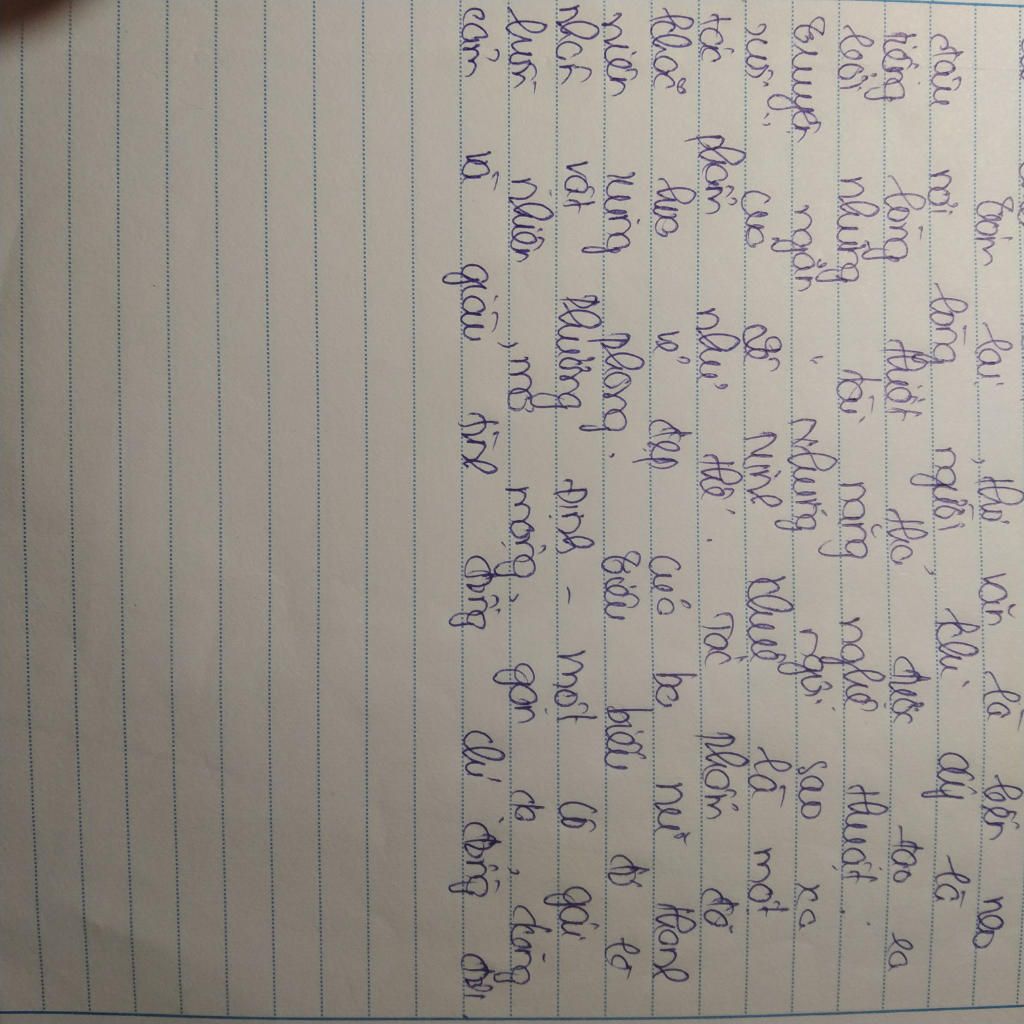 Tóm lại, thơ văn là bến neo
đậu nơi lòng người khi dấy là
tiếng lòng thiết tha, được tạo ra
bởi những tài năng nghệ thuật.
Truyện ngắn "Những ngôi sao xa
xôi" của Lê Minh Khuê là một
tác phẩm như thế. Tác phẩm đã
khắc họa vẻ đẹp của ba nữ thanh
niên xung phong. Tiêu biểu đó là
nhân vật Phương Định - một cô gái
hồn nhiên, mơ mộng, gan dạ, dũng
cảm và giàu tình đồng chí đồng đội.